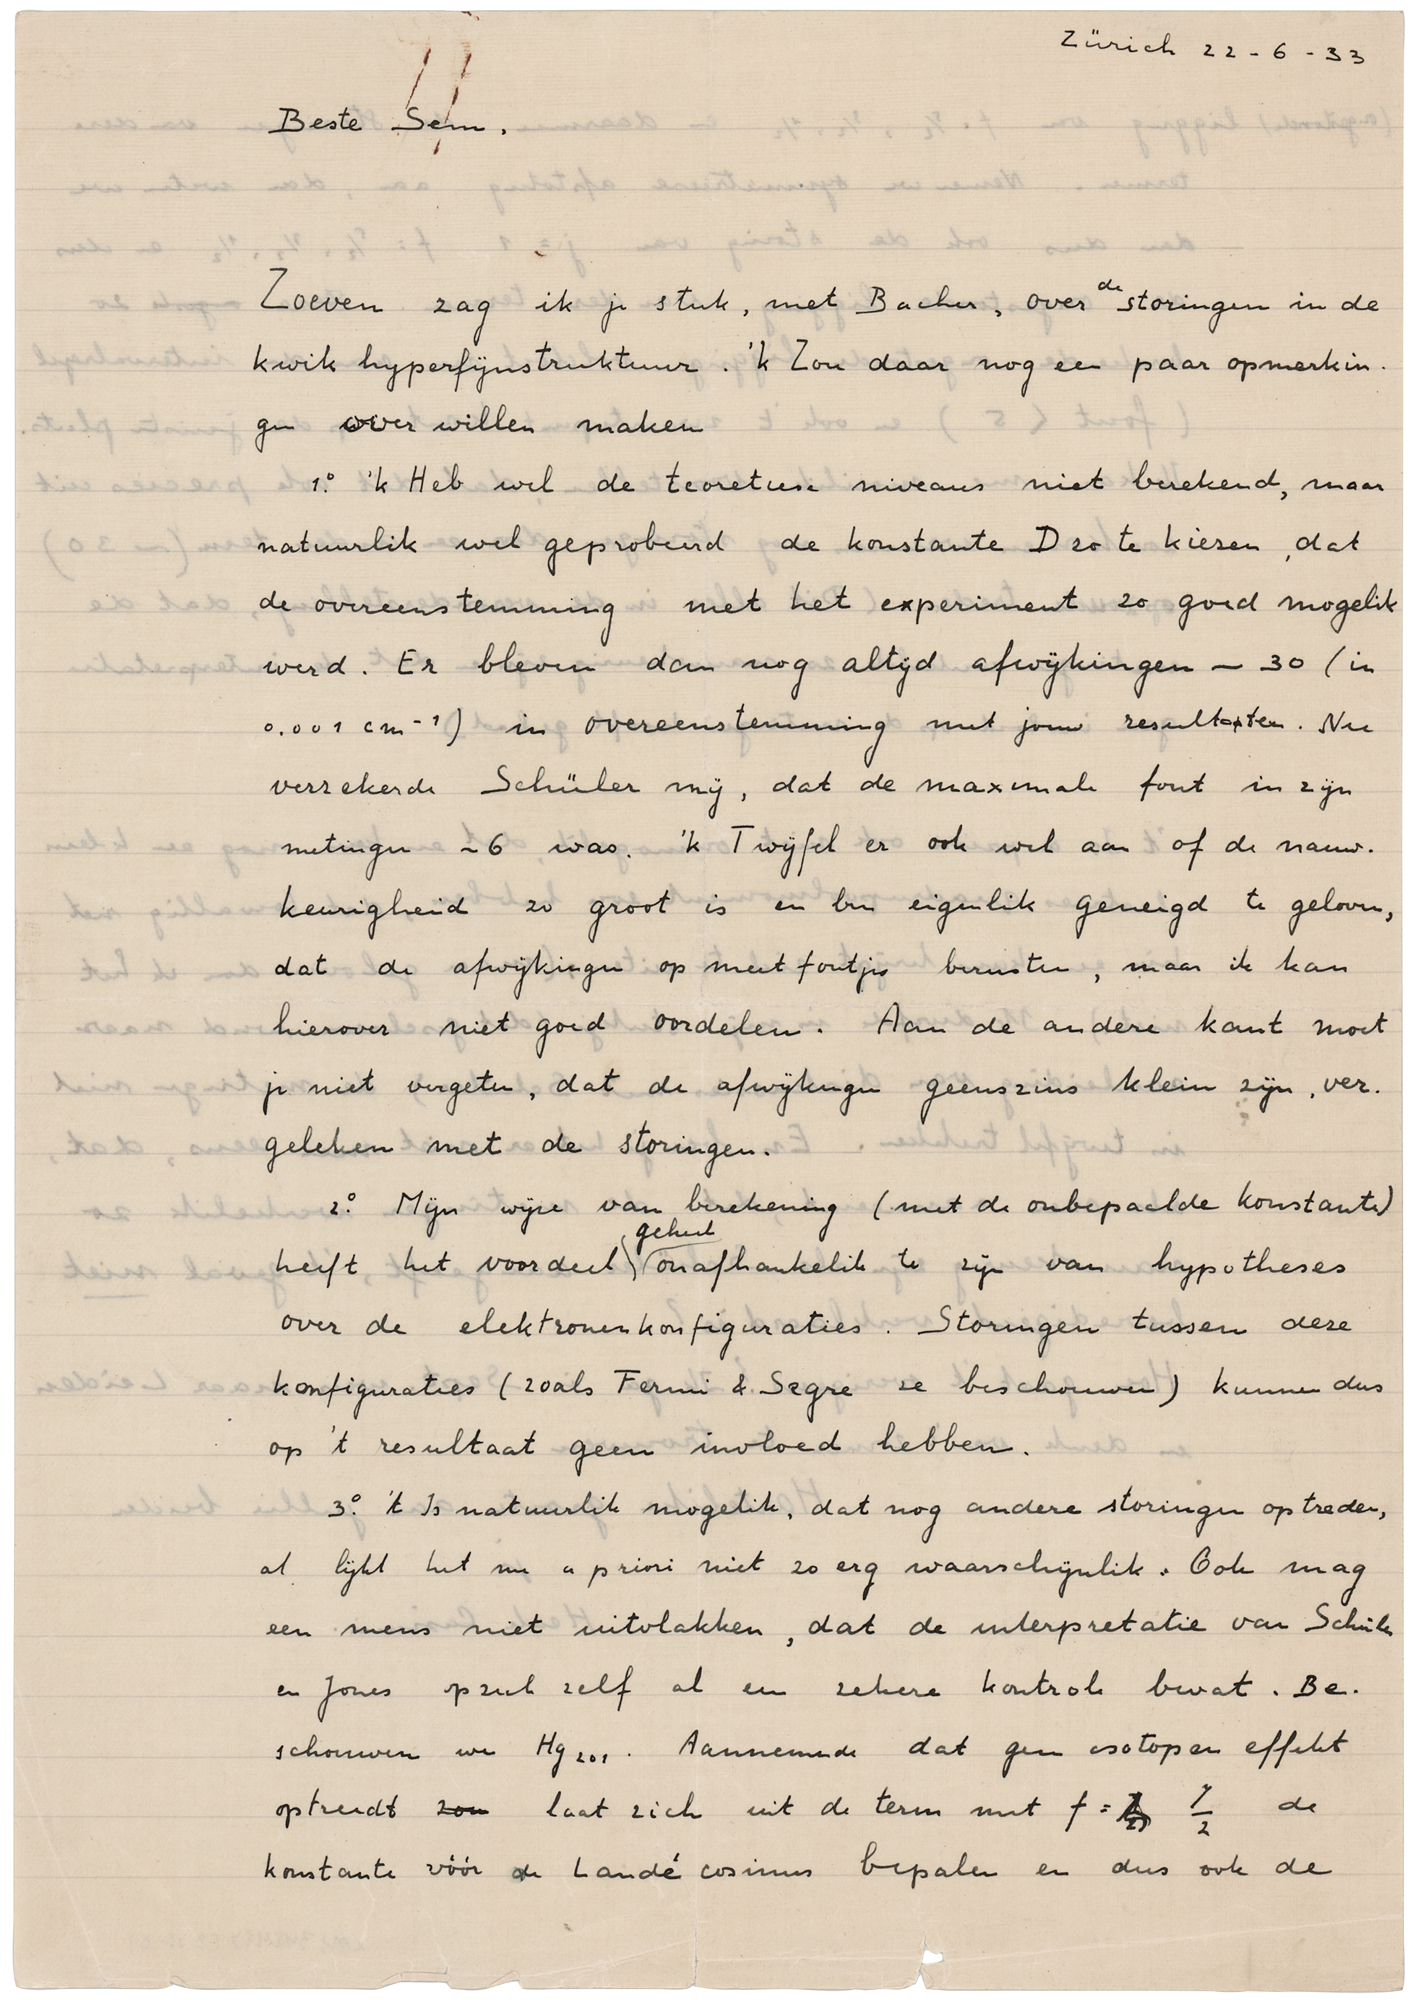 Zürich 22-6-33
Beste Sem.
Zoeven zag ik je stuk, met Bacher, over de storingen in de
kwik hyperfijnstruktuur. 'k Zou daar nog een paar opmerkin-
gen over willen maken
1.° 'k Heb wel de teoretiese niveaus niet berekend, maar
natuurlik wel geprobeerd de konstante D zo te kiezen, dat
de overeenstemming met het experiment zo goed mogelik
werd. Er bleven dan nog altijd afwijkingen ~ 30 (in
0.001 cm⁻¹) in overeenstemming met jouw resultaten. Nu
verzekerde Schüler mij, dat de maximale fout in zijn
metingen ~6 was. 'k Twijfel er ook wel aan of de nauw-
keurigheid zo groot is en ben eigenlik geneigd te geloven,
dat de afwijkingen op meetfoutjes berusten, maar ik kan
hierover niet goed oordelen. Aan de andere kant moet
je niet vergeten, dat de afwijkingen geenszins klein zijn, ver-
geleken met de storingen.
2.° Mijn wijze van berekening (met de onbepaalde konstante)
heeft het voordeel geheel onafhankelik te zijn van hypotheses
over de elektronenkonfiguraties. Storingen tussen deze
konfiguraties (zoals Fermi & Segre ze beschouwen) kunnen dus
op 't resultaat geen invloed hebben.
3.° 't Is natuurlik mogelik, dat nog andere storingen optreden,
al lijkt het me a priori niet zo erg waarschijnlik. Ook mag
een mens niet uitvlakken, dat de interpretatie van Schüler
en Jones op zich zelf al een zekere kontrole bevat. Be-
schouwen we Hg₂₀₁. Aannemende dat geen isotopen effekt
optreedt zou laat zich uit de term met f = 7/2 de
konstante vóór de Landé cosinus bepalen en dus ook de